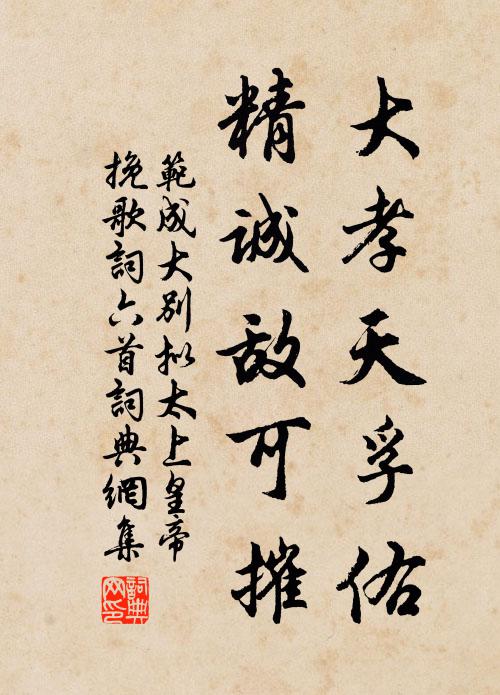 大孝天孚佑
精誠敌可摧
範成大别拟太上皇帝
挽歌詞六首詞典網集
詞典网印